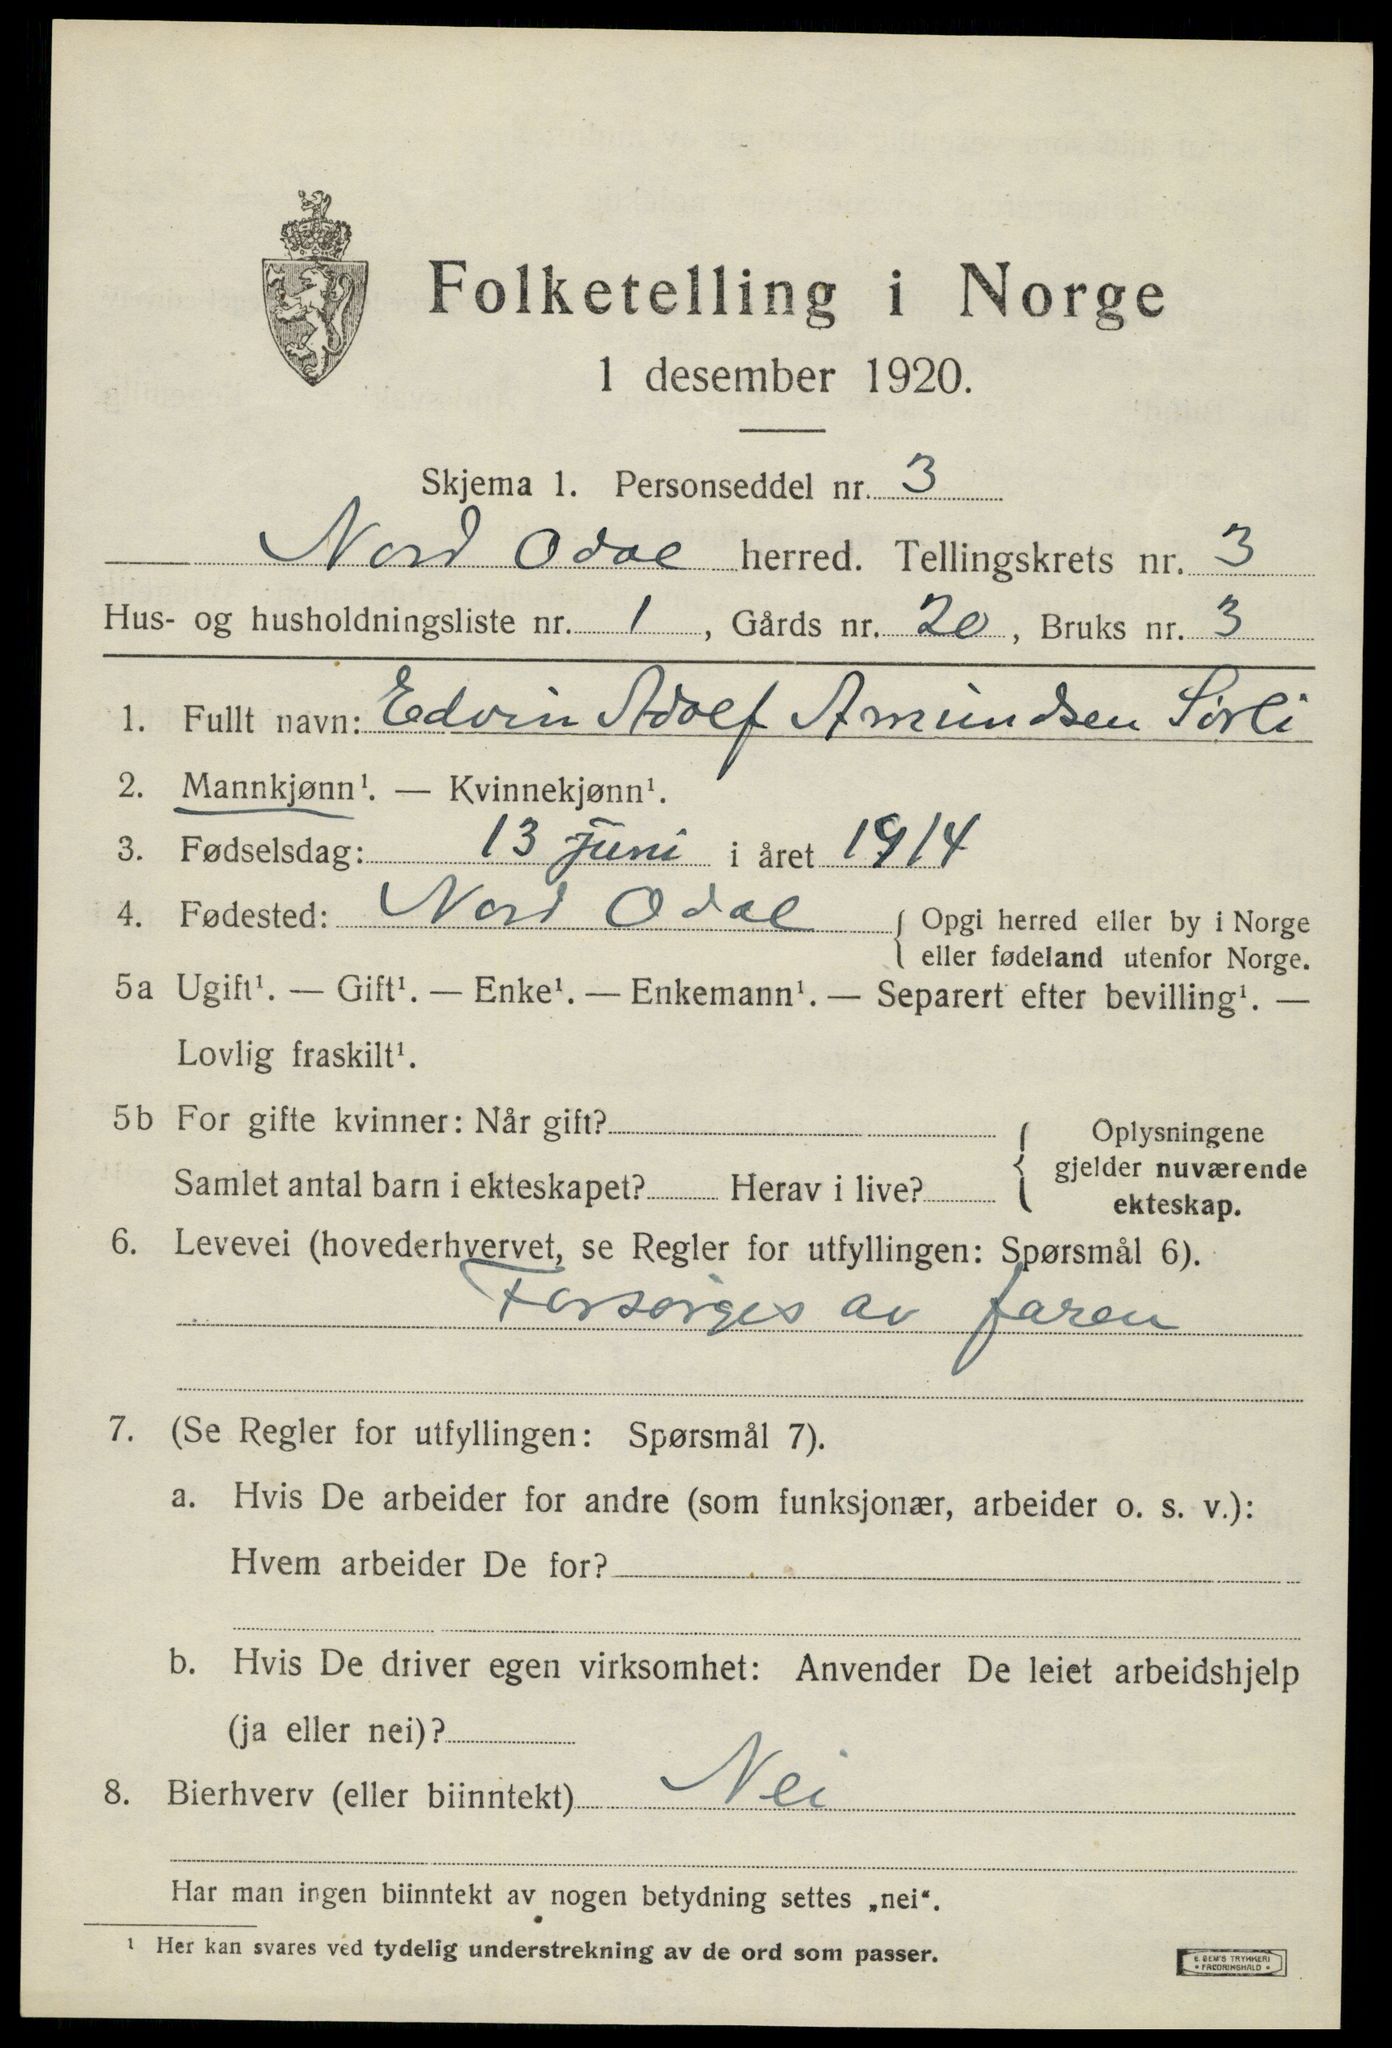 Folketelling i Norge
1 desember 1920.
Skjema 1. Personseddel nr. 3
Nord Odal herred. Tellingskrets nr. 3
Hus- og husholdningsliste nr. 1, Gårds nr. 20, Bruks nr. 3
1. Fullt navn: Edvin Adolf Amundsen Sørli
2. Mannkjønn¹. — Kvinnekjønn¹.
3. Fødselsdag: 13 juni i året 1914
4. Fødested: Nord Odal { Opgi herred eller by i Norge
eller fødeland utenfor Norge.
5a Ugift¹. — Gift¹. — Enke¹. — Enkemann¹. — Separert efter bevilling¹. —
Lovlig fraskilt¹.
5b For gifte kvinner: Når gift?
Samlet antal barn i ekteskapet? Herav i live?
{ Oplysningene
gjelder nuværende
ekteskap.
6. Levevei (hovederhvervet, se Regler for utfyllingen: Spørsmål 6).
Forsørges av faren
7. (Se Regler for utfyllingen: Spørsmål 7).
a. Hvis De arbeider for andre (som funksjonær, arbeider o. s. v.):
Hvem arbeider De for?
b. Hvis De driver egen virksomhet: Anvender De leiet arbeidshjelp
(ja eller nei)?
8. Bierhverv (eller biinntekt) Nei
Har man ingen biinntekt av nogen betydning settes „nei“.
¹ Her kan svares ved tydelig understrekning av de ord som passer.
E. SEM'S TRYKKERI
• FREDRIKSHALD •